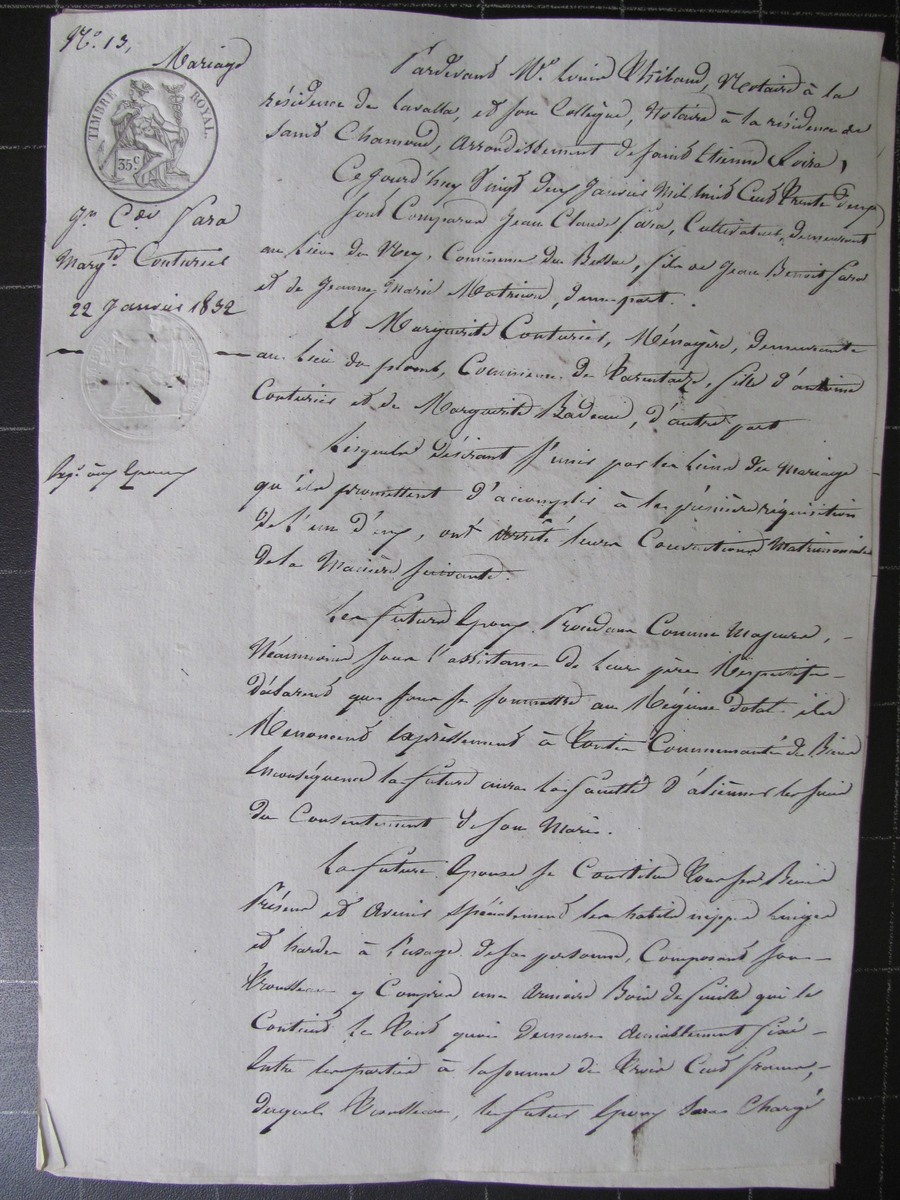 N.° 13,
Mariage
TIMBRE ROYAL
35 c
Jn Cde Fara
Margte Couturier
22 Janvier 1832
Expn aux Epoux
Pardevant Me Louis Thibaud, Notaire à la
résidence de Lavalla, et son Collègue, Notaire à la résidence de
saint Chamond, arrondissement de saint Etienne Loire,
Ce jourd'huy Vingt deux Janvier Mil huit Cent Trente deux,
sont Comparus Jean Claude Fara, Cultivateur, demeurant
au lieu du Mey, Commune du Bessac, fils de Jean Benoit Fara
et de Jeanne Marie Matricon, d'une part.
Et Marguerite Couturier, Ménagère, demeurante
au lieu du plomb, Commune de Tarentaize, fille d'antoine
Couturier et de Marguerite Badeau, d'autre part
Lesquels désirant s'unir par les liens du Mariage
qu'ils promettent d'accomplir à la première réquisition
de l'un d'eux, ont arrêté leurs Conventions Matrimoniales
de la Manière suivante.
Les futurs Epoux Procédans Comme Majeurs,
Néanmoins sous l'assistance de leurs père Respectifs
déclarent que pour se soumettre au Régime dotal ils
Renoncent expressément à Toutes Communauté de Biens
En conséquence la future aura la faculté d'aliéner les siens
du Consentement de son Mari.
La future Epouse se Constitue Tous ses Biens
Présens et avenir spécialement les habits nippes linges
et hardes à l'usage de sa personne, Composant son
Trousseau y Compris une armoire Bois de fuille qui le
Contient Le Tout quoi demeure amiablement fixé
Entre les parties à la somme de Trois Cent francs,
duquel Trousseau, le futur Epoux sera Chargé